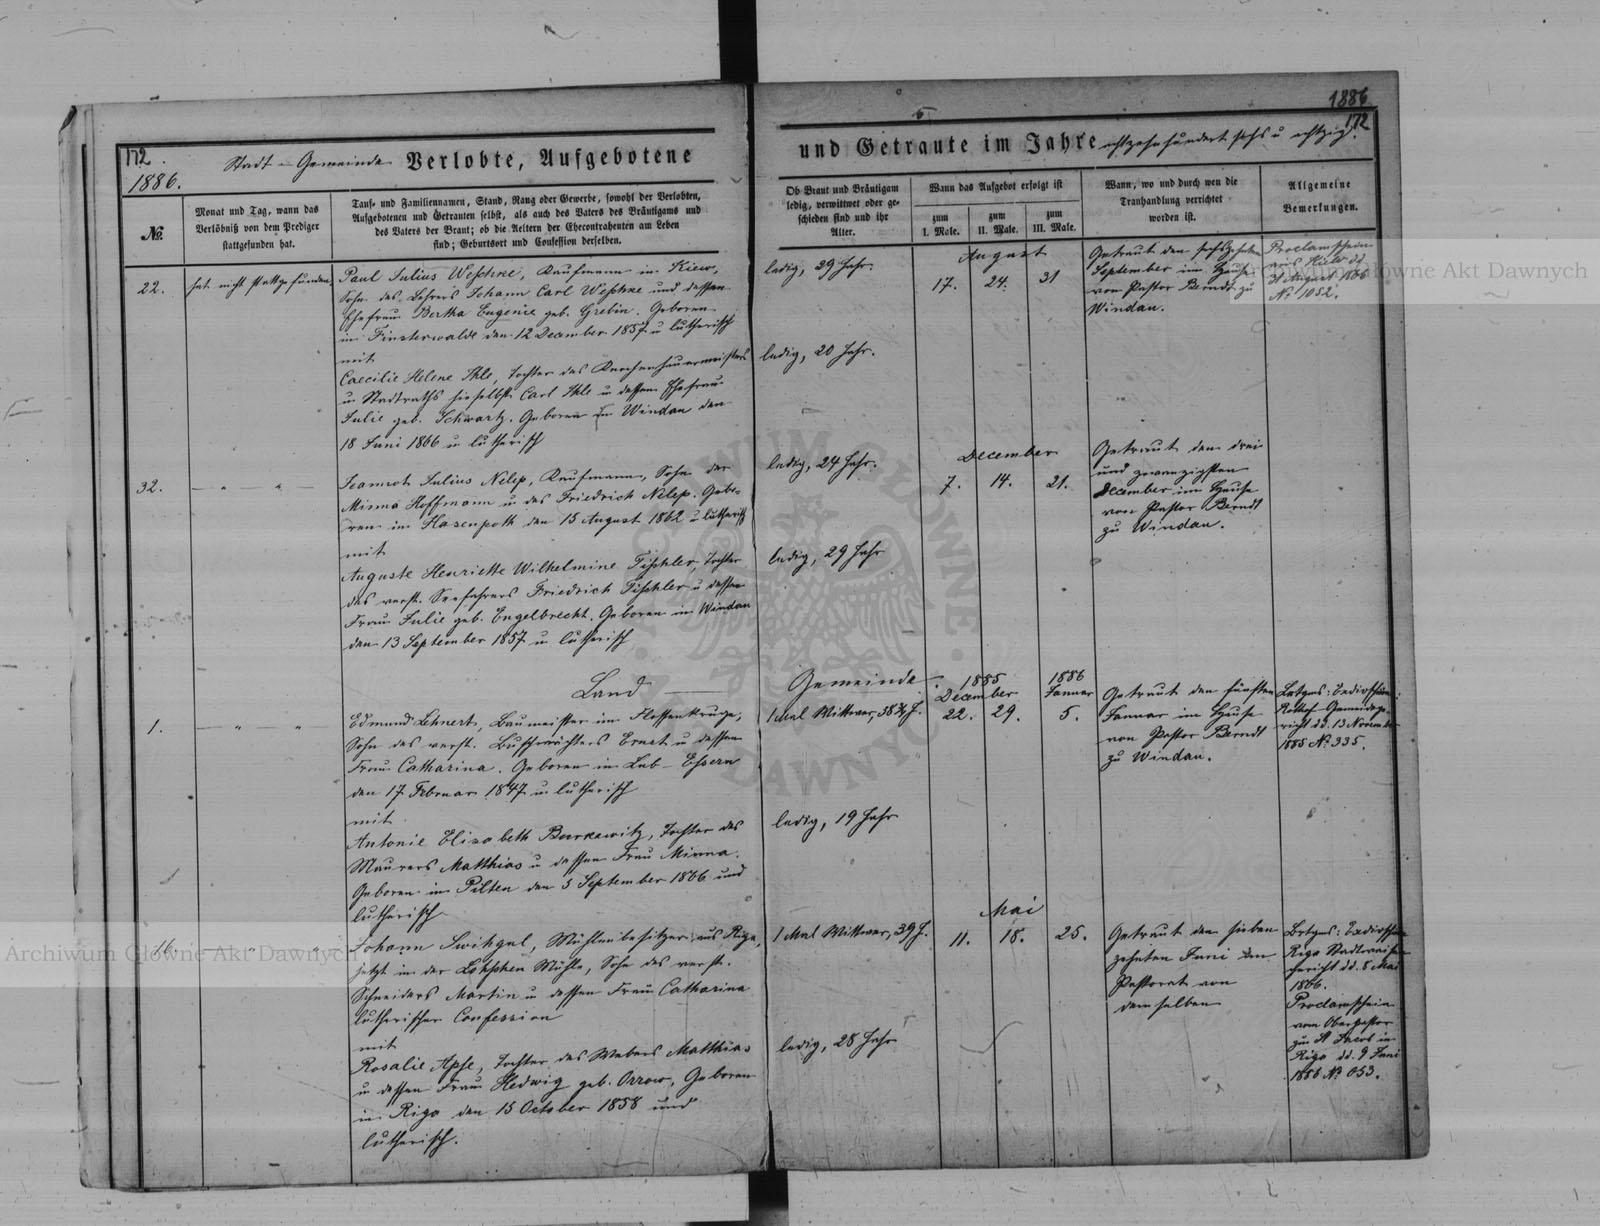 1886
172.
1886.
Stadt-Gemeinde Verlobte, Aufgebotene
№.
Monat und Tag, wann das
Verlöbniß von dem Prediger
stattgefunden hat.
Tauf- und Familiennamen, Stand, Rang oder Gewerbe, sowohl der Verlobten,
Aufgebotenen und Getrauten selbst, als auch des Vaters des Bräutigams und
des Vaters der Braut; ob die Aeltern der Ehecontrahenten am Leben
sind; Geburtsort und Confession derselben.
22.
hat nicht stattgefunden
Paul Julius Weschke, Kaufmann in Kiew,
Sohn des Lehrers Johann Carl Weschke und dessen
Ehefrau Bertha Eugenie geb. Grebin. Geboren
in Finsterwalde den 12 December 1857 u lutherisch
mit
Caecilie Helene Ihle, Tochter des
u Stadtraths hieselbst Carl Ihle u dessen Ehefrau
Julie geb. Schwartz. Geboren in Windau den
18 Juni 1866 u lutherisch
32.
Jeannot Julius Nelep, Kaufmann, Sohn der
Minna Hoffmann u des Friedrich Nelep. Gebo-
ren in Hasenpoth den 15 August 1862 u lutherisch
mit
Auguste Henriette Wilhelmine Tischler, Tochter
des verst. Seefahrers Friedrich Tischler u dessen
Frau Julie geb. Engelbrecht. Geboren in Windau
den 13 September 1857 u lutherisch
Land
1.
Edmund Lehnert, Baumeister im Flossenkruge,
Sohn des verst. Buschwächters Ernst u dessen
Frau Catharina. Geboren in Lub-Essern
den 17 Februar 1847 u lutherisch
mit
Antonie Elisabeth Burkewitz, Tochter des
Maurers Matthias u dessen Frau Minna.
Geboren in Pilten den 5 September 1866 und
lutherisch
16.
Johann Switzgal, Mühlenbesitzer aus Riga,
jetzt in der Mühle, Sohn des verst.
Schneiders Martin u dessen Frau Catharina
lutherischer Confession
mit
Rosalie Apse, Tochter des Webers Matthias
u dessen Frau Hedwig geb. Orrow, Geboren
in Riga den 15 October 1858 und
lutherisch.
172
und Getraute im Jahre achtzehnhundert sechs u achtzig.
Ob Braut und Bräutigam
ledig, verwittwet oder ge-
schieden sind und ihr
Alter.
Wann das Aufgebot erfolgt ist
zum
I. Male.
zum
II. Male.
zum
III. Male.
Wann, wo und durch wen die
Trauhandlung verrichtet
worden ist.
Allgemeine
Bemerkungen.
ledig, 29 Jahr.
August
17. 24. 31
Getraut den sechszehnten
September im Hause
von Pastor Berndt zu
Windau.
Proclamschein
aus Kiew dd
31 August 1886
№ 1052.
ledig, 20 Jahr.
ledig, 24 Jahr.
December
7. 14. 21.
Getraut den drei
und zwanzigsten
December im Hause
von Pastor Berndt
zu Windau.
ledig, 29 Jahr
Gemeinde
1885
December
1886
Januar
1 Mal Wittwer, 38 ¾ J.
22. 29. 5.
Getraut den fünften
Januar im Hause
von Pastor Berndt
zu Windau.
dd. 13 November
1885 № 335.
ledig, 19 Jahr
Mai
1 Mal Wittwer, 39 J.
11. 18. 25.
Getraut den sieben
zehnten Juni im
Pastorat von
demselben
Riga
gericht dd. 8 Mai
1886.
Proclamschein
vom Oberpastor
zu St Jacob in
Riga dd. 9 Juni
1886 № 653.
ledig, 28 Jahr
Archiwum Główne Akt Dawnych
Archiwum Główne Akt Dawnych
ARCHIWUM GŁÓWNE AKT DAWNYCH